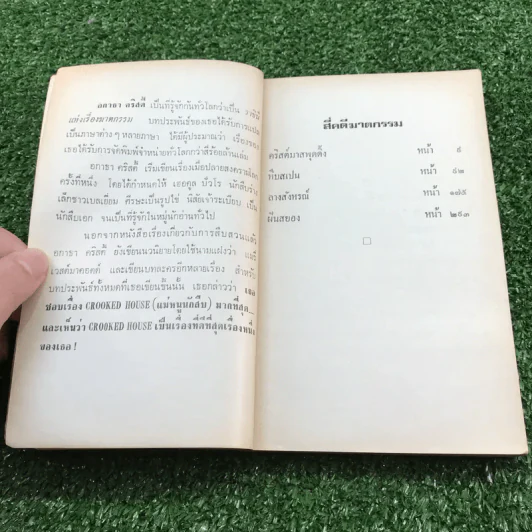 อกาธา คริสตี้ เป็นที่รู้จักกันทั่วโลกว่าเป็น ราชินี
แห่งเรื่องฆาตกรรม บทประพันธ์ของเธอได้รับการแปล
เป็นภาษาต่างๆ หลายภาษา ได้มีผู้ประมาณว่า เรื่องของ
เธอได้รับการจัดพิมพ์จำหน่ายทั่วโลกกว่าสี่ร้อยล้านเล่ม
อกาธา คริสตี้ เริ่มเขียนเรื่องเมื่อปลายสงครามโลก
ครั้งที่หนึ่ง โดยได้กำหนดให้ เฮอคูล ปัวโร นักสืบร่าง
เล็กชาวเบลเยี่ยม ศีรษะเป็นรูปไข่ นิสัยเจ้าระเบียบ เป็น
นักสืบเอก จนเป็นที่รู้จักในหมู่นักอ่านทั่วไป
นอกจากหนังสือเรื่องเกี่ยวกับการสืบสวนแล้ว
อกาธา คริสตี้ ยังเขียนนวนิยายโดยใช้นามแฝงว่า แมรี่
เวสต์มาคอตต์ และเขียนบทละครอีกหลายเรื่อง สำหรับ
บทประพันธ์ทั้งหมดที่เธอเขียนขึ้นนั้น เธอกล่าวว่า เธอ
ชอบเรื่อง CROOKED HOUSE (แม่หนูนักสืบ) มากที่สุด
และเห็นว่า CROOKED HOUSE เป็นเรื่องที่ดีที่สุดเรื่องหนึ่ง
ของเธอ !
สี่คดีฆาตกรรม
คริสต์มาสพุดดิ้ง หน้า ๕
หีบสเปน หน้า ๘๒
ลางสังหรณ์ หน้า ๑๗๕
ฝันสยอง หน้า ๒๔๓